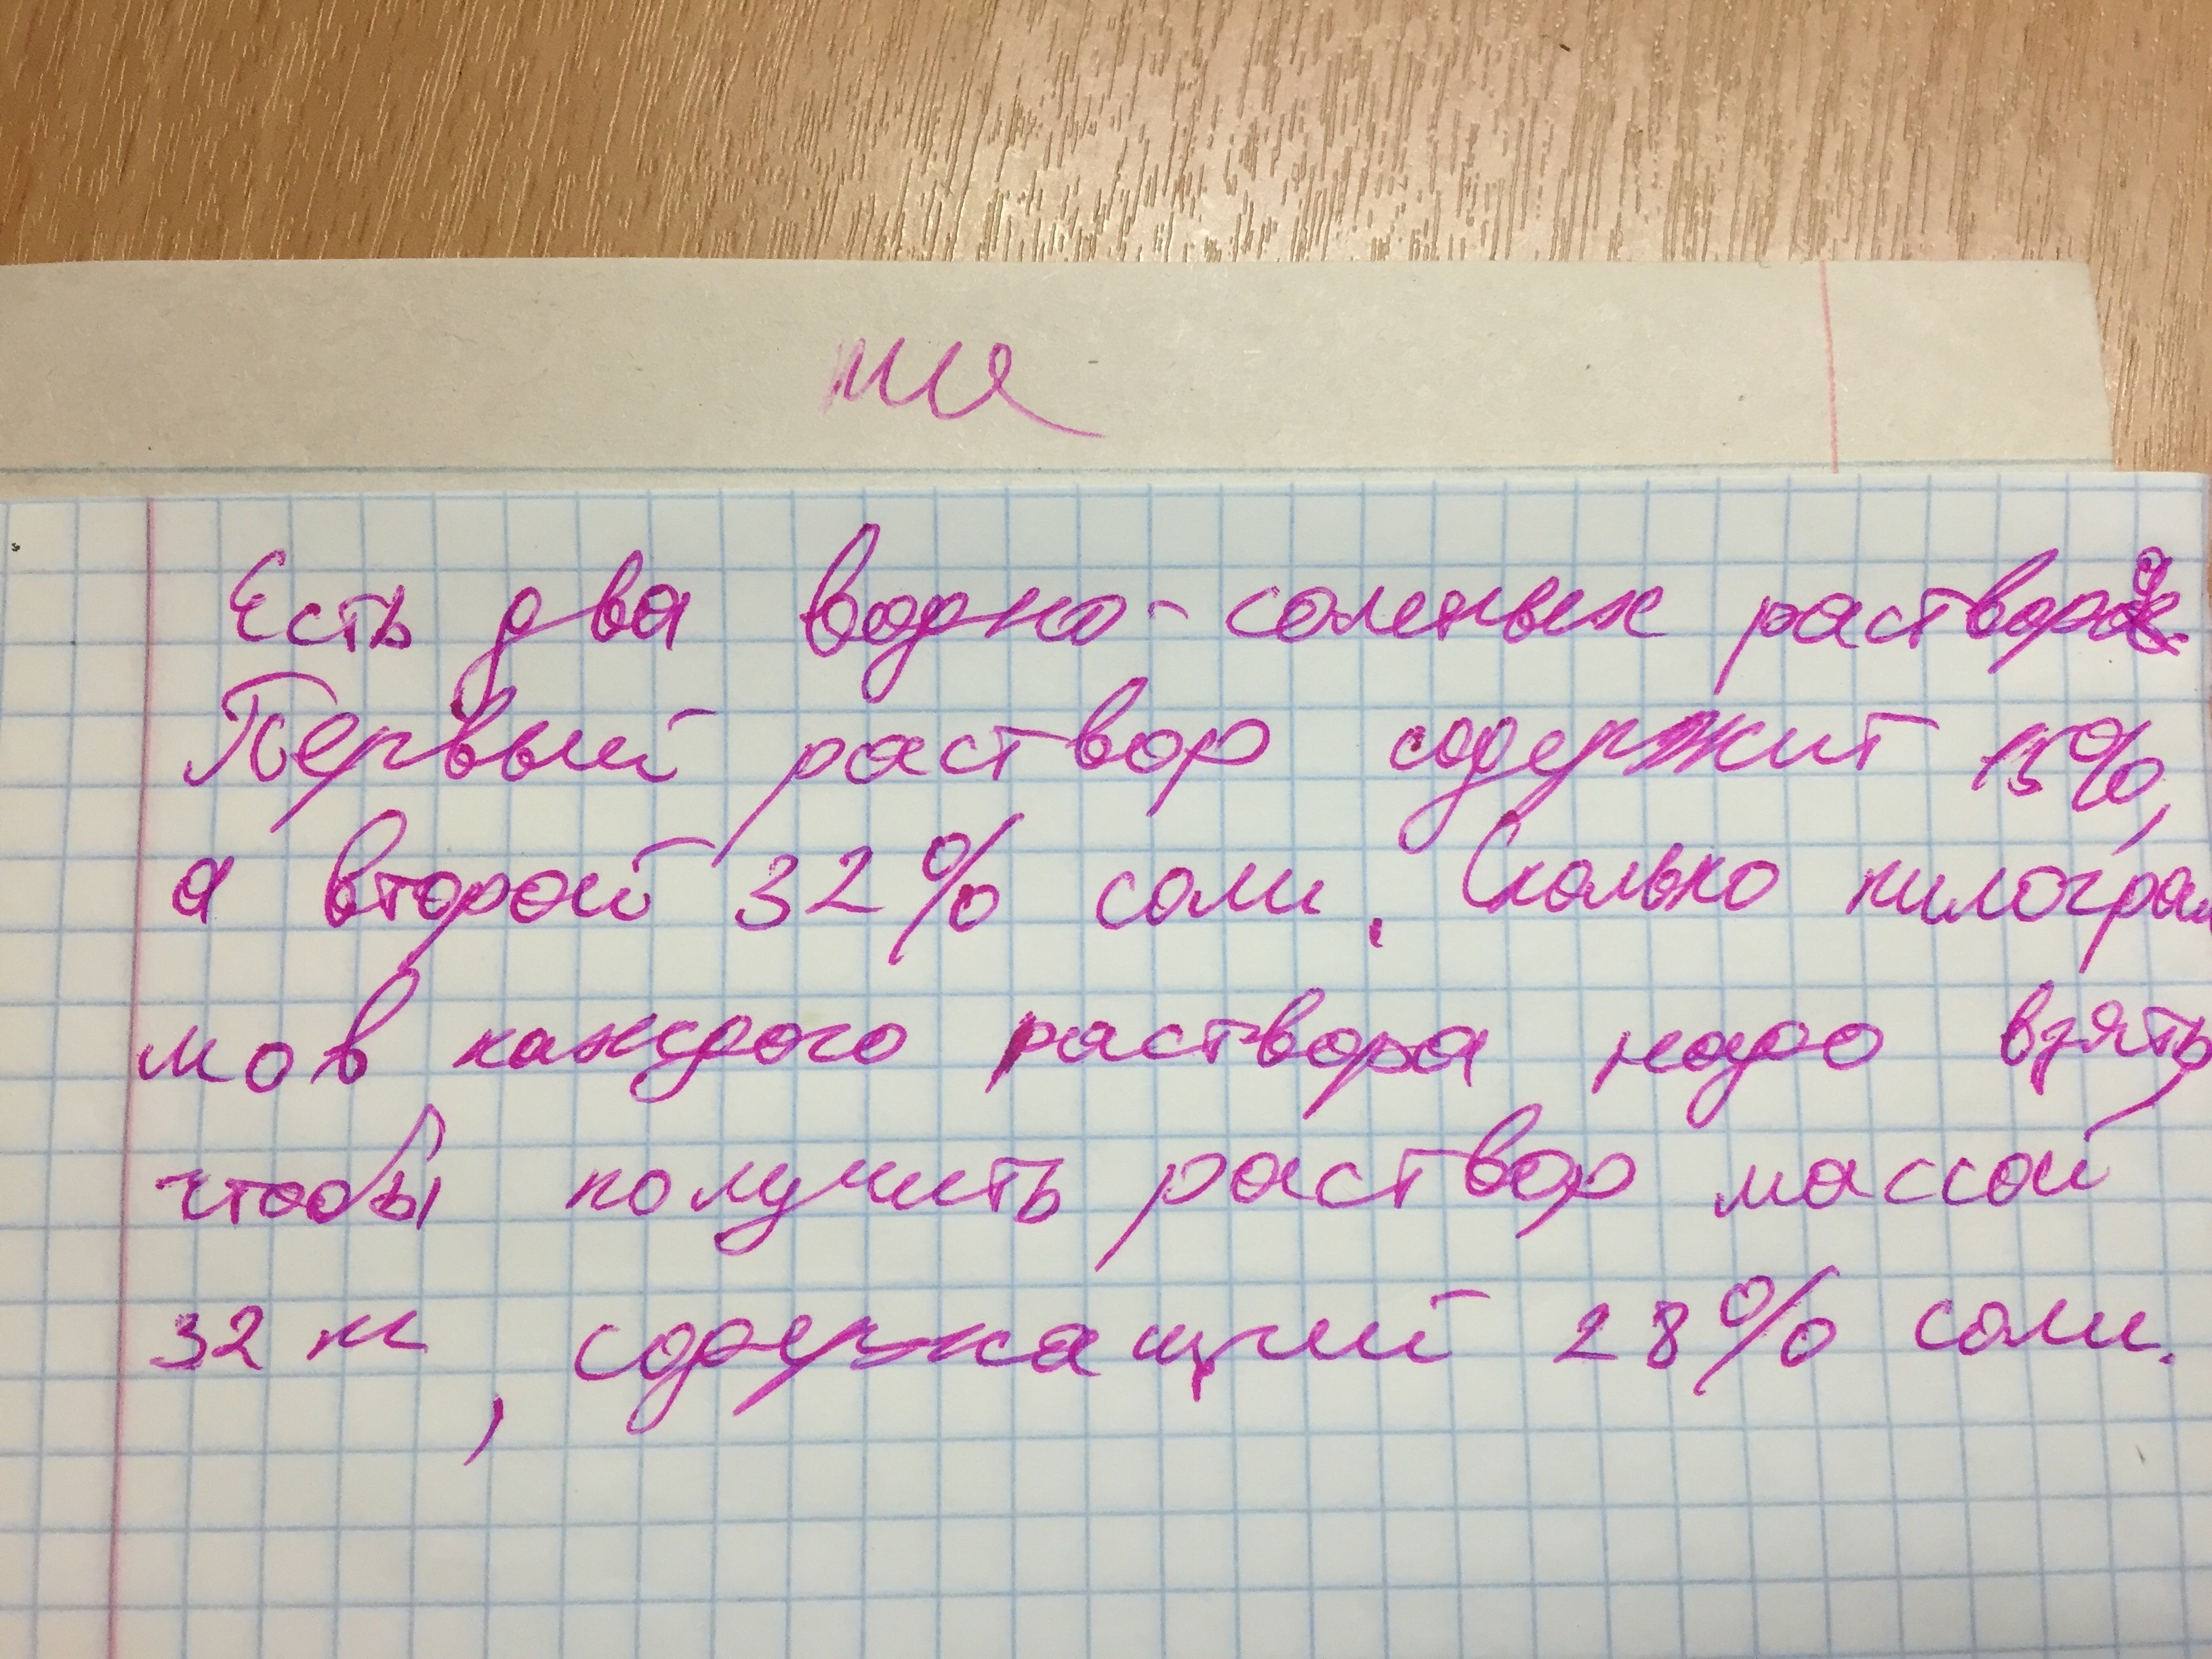 Есть два водно-соленых раствора.
Первый раствор содержит 15%,
а второй 32% соли. Сколько килограм
мов каждого раствора надо взять
чтобы получить раствор массой
32 кг, содержащий 28% соли.